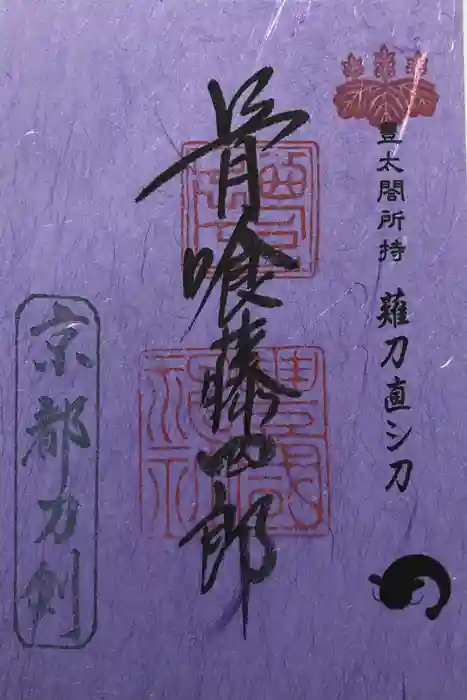 豊太閤所持 薙刀直シ刀
骨喰藤四郎
豊國神社
京都刀剣